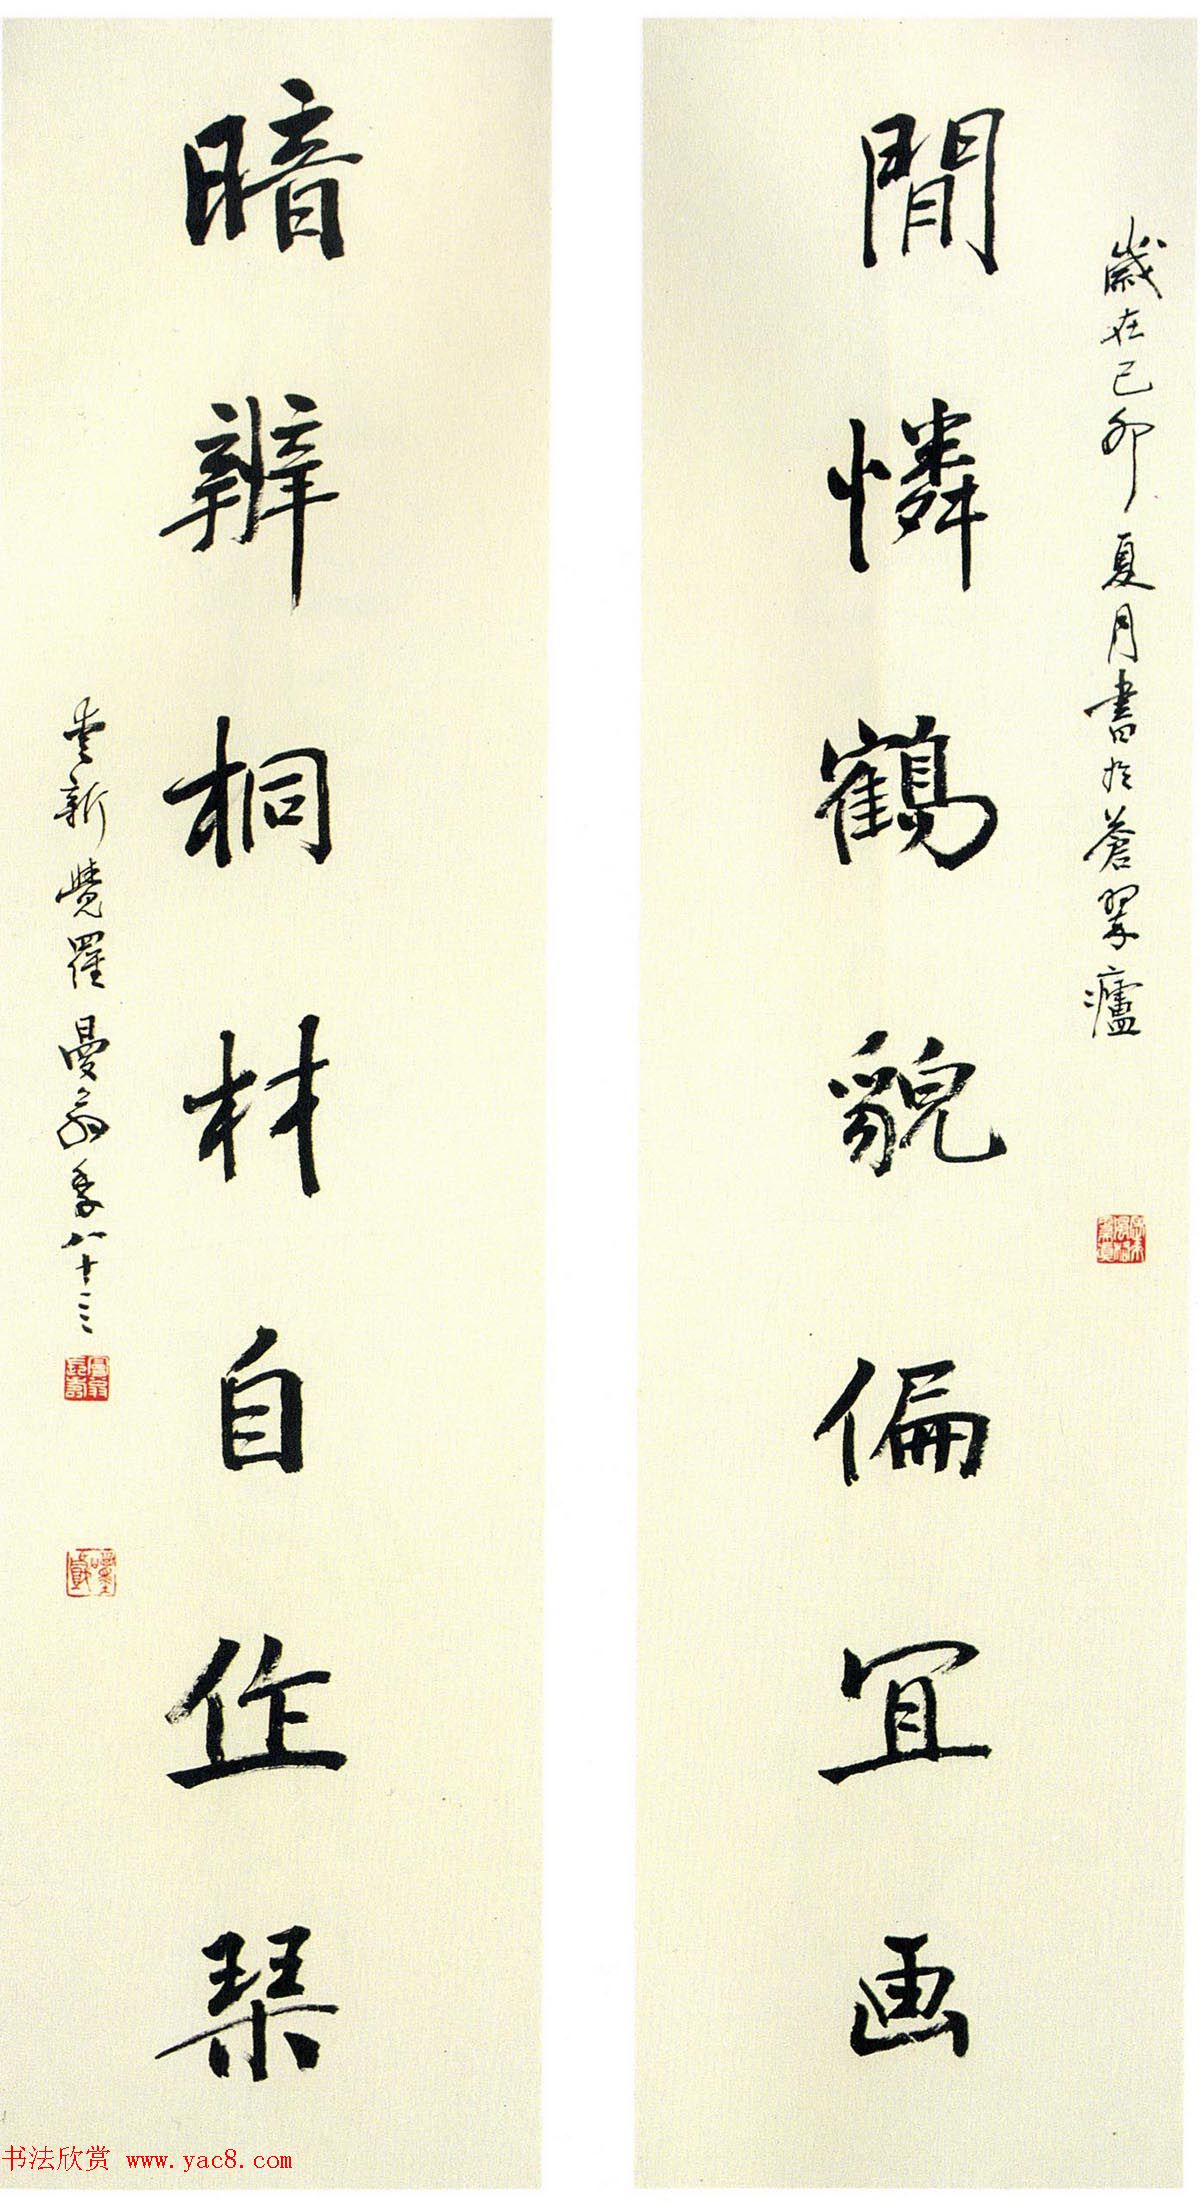 歲在己卯夏月書於蒼翠廬
閒憐鶴貌偏宜画
暗辨桐材自作琹
愛新覺羅曼翁年八十三
書法欣赏 www.yac8.com